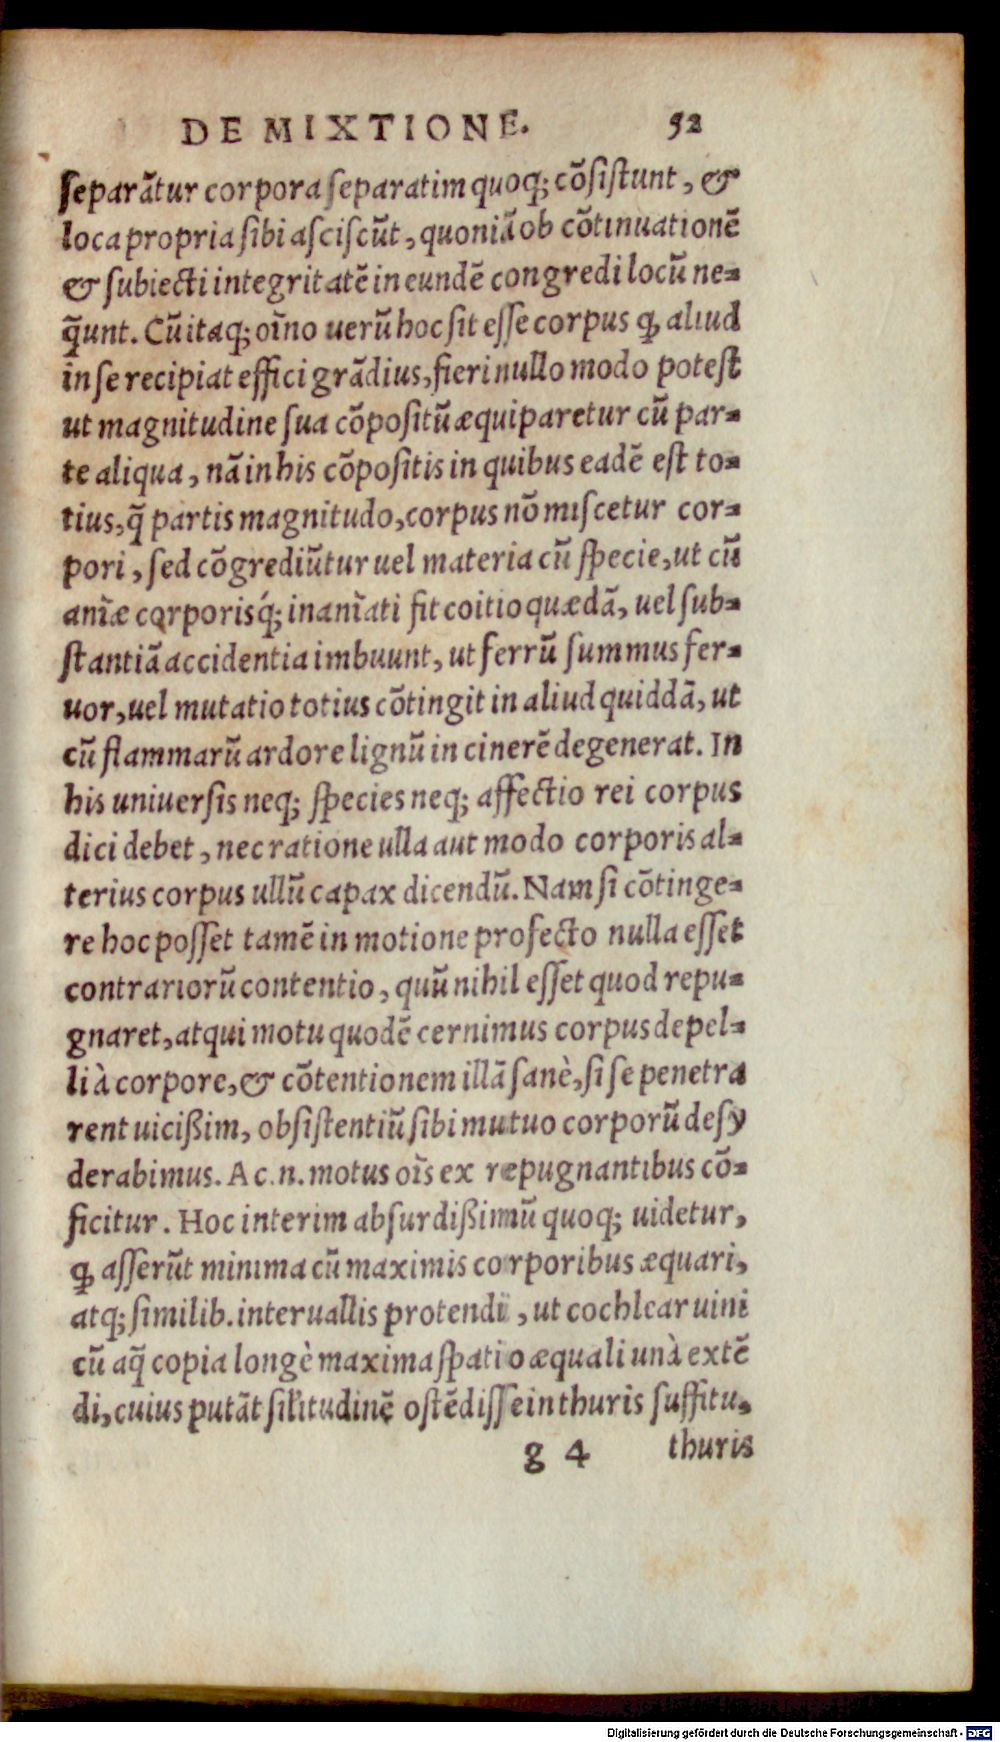 DE MIXTIONE. 52
separãtur corpora separatim quoq; cõsistunt, &
loca propria sibi asciscũt, quoniã ob cõtinuationẽ
& subiecti integritatẽ in eundẽ congredi locũ ne=
q̃unt. Cũ itaq; oĩno uerũ hoc sit esse corpus ꝙ aliud
in se recipiat effici grãdius, fieri nullo modo potest
ut magnitudine sua cõpositũ æquiparetur cũ par=
te aliqua, nã in his cõpositis in quibus eadẽ est to=
tius, q̃ partis magnitudo, corpus nõ miscetur cor=
pori, sed cõgrediũtur uel materia cũ specie, ut cũ
anĩæ corporisq́; inanĩati fit coitio quædã, uel sub=
stantiã accidentia imbuunt, ut ferrũ summus fer=
uor, uel mutatio totius cõtingit in aliud quiddã, ut
cũ flammarũ ardore lignũ in cinerẽ degenerat. In
his uniuersis neq; species neq; affectio rei corpus
dici debet, nec ratione ulla aut modo corporis al=
terius corpus ullũ capax dicendũ. Nam si cõtinge=
re hoc posset tamẽ in motione profecto nulla esset
contrariorũ contentio, quũ nihil esset quod repu=
gnaret, atqui motu quodẽ cernimus corpus depel=
li à corpore, & cõtentionem illã sanè, si se penetra
rent uicißim, obsistentiũ sibi mutuo corporũ desy
derabimus. Ac .n. motus oĩs ex repugnantibus cõ=
ficitur. Hoc interim absurdißimũ quoq; uidetur,
ꝙ asserũt minima cũ maximis corporibus æquari,
atq; similib. interuallis protendi, ut cochlear uini
cũ aq̃ copia longè maxima spatio æquali unà extẽ
di, cuius putãt silitudinẽ ostẽdisse in thuris suffitu,
g 4 thuris
Digitalisierung gefördert durch die Deutsche Forschungsgemeinschaft - DFG